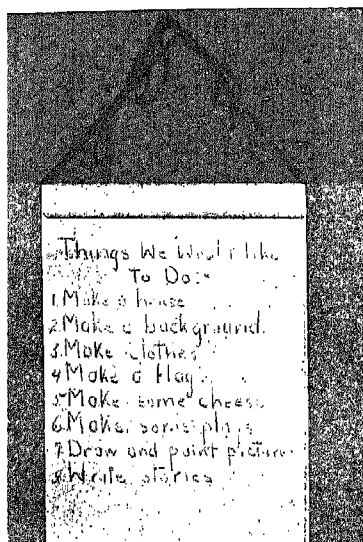 Things We Would like
To Do:-
1. Make a house
2. Make a background.
3. Make clothes
4 Make a flag
5 Make some cheese
6. Make some
7. Draw and paint pictures
8. Write stories